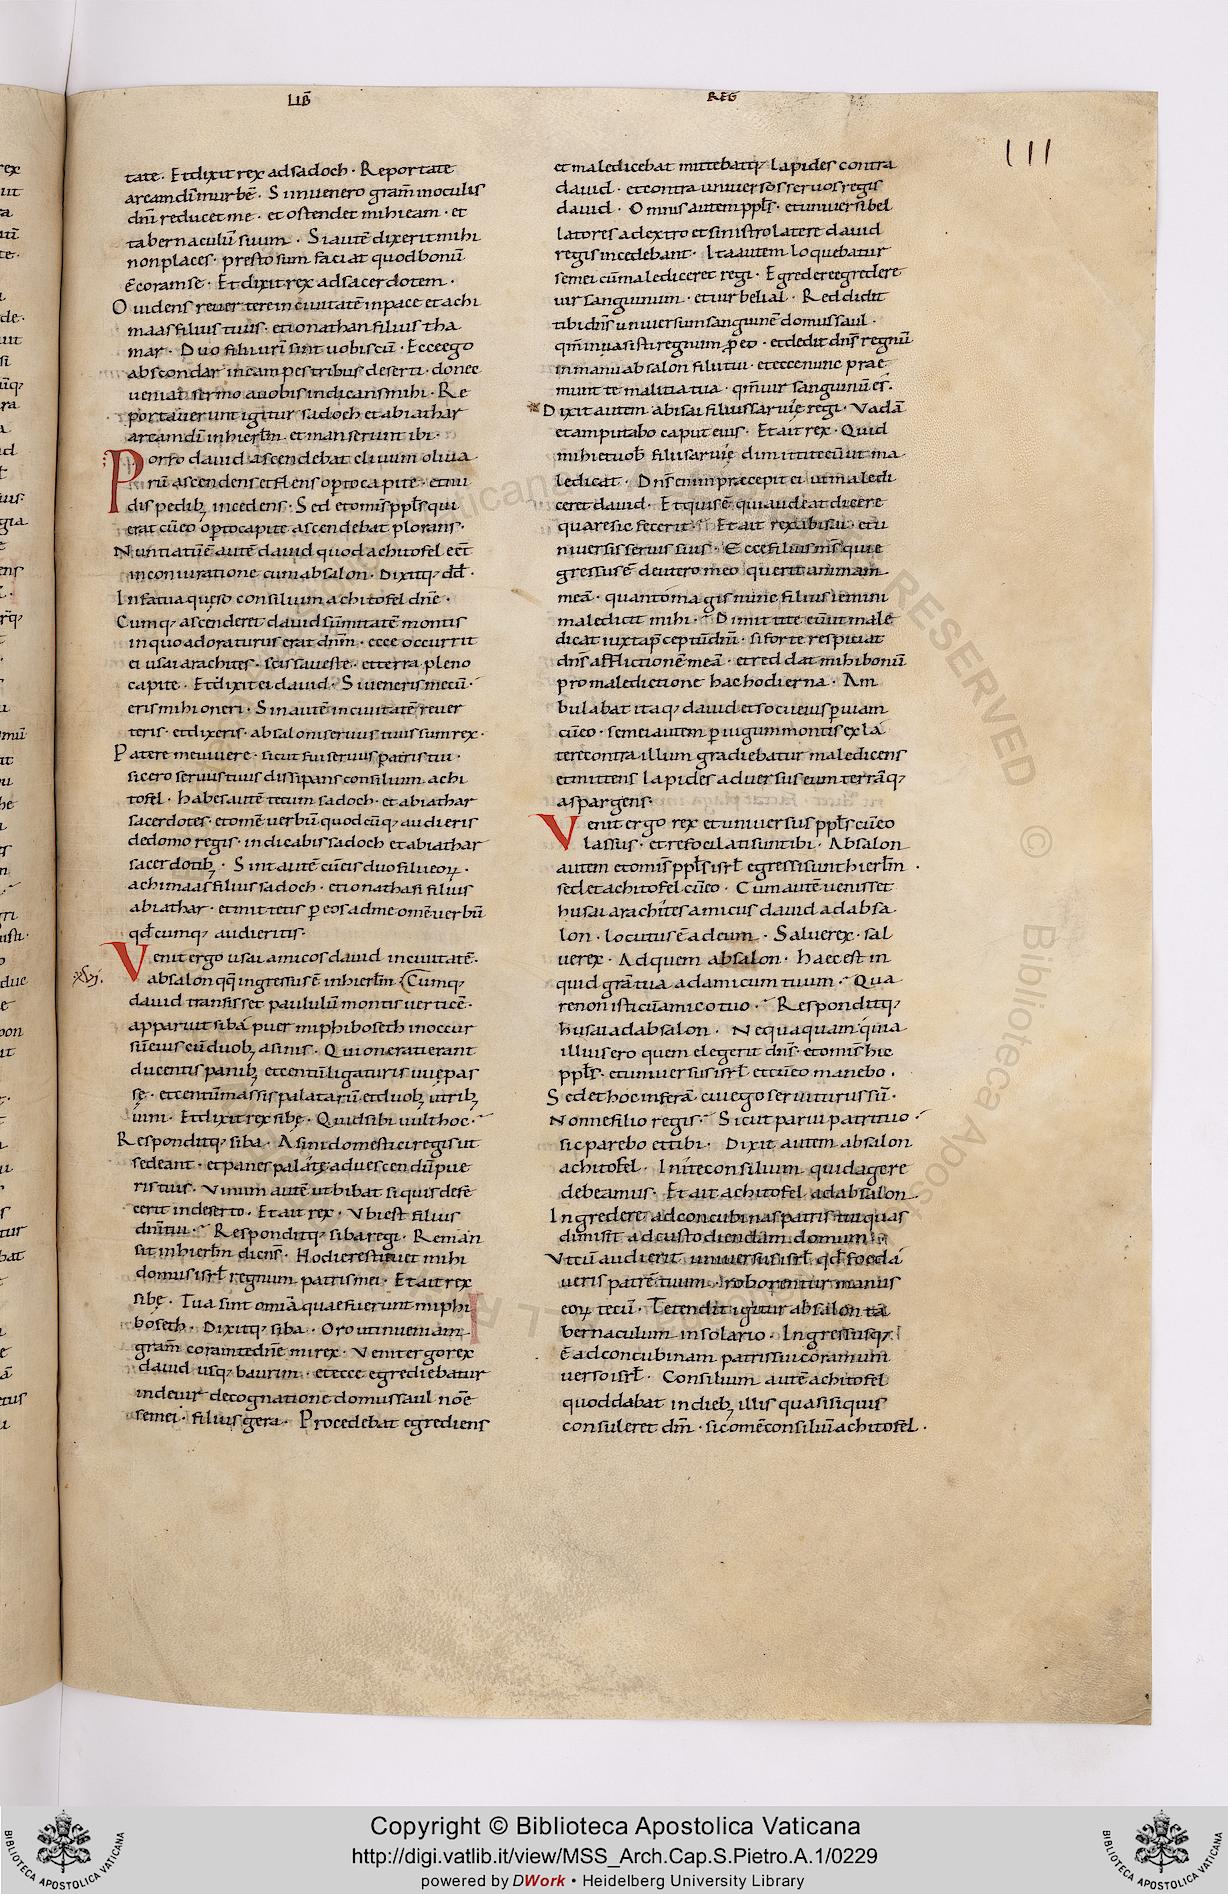 LIB̄
REḠ
III
tate · Et dixit rex ad sadoch · Reportate
arcam dī in urbē · Si invenero gratiā in oculis
dnī reducet me · et ostendet mihi eam · et
tabernaculū suum · Si autē dixerit mihi
non places · presto sum faciat quod bonū
ē coram se · Et dixit rex ad sacerdotem ·
O videns revertere in civitatē in pace et achi
maas filius tuus · et ionathan filius tha
mar · Duo filii vrī sint vobiscū · Ecce ego
abscondar in campestribus deserti · donec
veniat sermo a vobis indicans mihi · Re
portaverunt igitur sadoch et abiathar
arcam dī in hierłm · et manserunt ibi ·
Porro david ascendebat clivum oliva
rū ascendens et flens opto capite · et nu
dis pedib; incedens · Sed et omīs ppłs qui
erat cū eo opto capite ascendebat plorans ·
Nuntiatū ē autē david quod achitofel eēt
in coniuratione cum absalon · Dixitq; dd̄ ·
Infatua quęso consilium achitofel dnē ·
Cumq; ascenderet david sūmitatē montis
in quo adoraturus erat dnm̄ · ecce occurrit
ei usai arachites · scissa veste · et terra pleno
capite · Et dixit ei david · Si veneris mecū ·
eris mihi oneri · Sin autē in civitatē rever
teris · et dixeris · absalon servus tuus sum rex ·
Patere me vivere · sicut fui servus patris tui ·
sic ero servus tuus dissipans consilium achi
tofel · habes autē tecum sadoch · et abiathar
sacerdotes · et omē verbū quodcūq; audieris
de domo regis · indicabis sadoch et abiathar
sacerdotib; · Sint autē cū eis duo filii eoꝝ ·
achimaas filius sadoch · et ionathan filius
abiathar · et mittetis p eos ad me omē verbū
qđcumq; audieritis ·
Venit ergo usai amicos david in civitatē ·
xvj.
absalon qq̄ ingressus ē in hierłm · Cumq;
david transisset paululū montis verticē ·
apparuit siba puer miphiboseth in occur
sū eius cū duob; asinis · Qui onerati erant
ducentis panib; et centū ligaturis uvę pas
sę · et centum massis palatarū et duob; utrib;
vini · Et dixit rex sibę · Quid sibi vult hoc ·
Responditq; siba · Asini domestici regis ut
sedeant · et panes palatę ad vescendū pue
ris tuis · Vinum autē ut bibat si quis defe
cerit in deserto · Et ait rex · Ubi est filius
dnī tui · Responditq; siba regi · Reman
sit in hierłm dicens · Hodie restituet mihi
domus isrł regnum patris mei · Et ait rex
sibę · Tua sint omīa quae fuerunt miphi
boseth · Dixitq; siba · Oro ut inveniam
gratiam coram te dnē mi rex · Venit ergo rex
david usq; baurim · et ecce egrediebatur
inde vir de cognatione domus saul noē
semei · filius gera · Procedebat egrediens
et maledicebat mittebatq; lapides contra
david · et contra universos servos regis
david · Omnis autem ppłs · et universi bel
latores a dextro et sinistro latere david
regis incedebant · Ita autem loquebatur
semei cū malediceret regi · Egredere egredere
vir sanguinum · et vir belial · Reddidit
tibi dns̄ universum sanguinē domus saul ·
qm̄ invasisti regnum p eo · et dedit dns̄ regnū
in manu absalon filii tui · et ecce nunc prae
munt te malitia tua · qm̄ vir sanguinū es ·
Dixit autem abisai filius sarvię regi · Vadā
et amputabo caput eius · Et ait rex · Quid
mihi et vob̄ filii sarvię dimittite eū ut ma
ledicat · Dns̄ enim praecepit ei ut maledi
ceret david · Et quis ē qui audeat dicere
quare sic fecerit · Et ait rex abisai · et u
niversis servis suis · Ecce filius ms̄ qui e
gressus ē de utero meo querit animam
meā · quanto magis nunc filius iemini
maledicit mihi · Dimittite eū ut male
dicat iuxta pceptū dnī · si forte respiciat
dns̄ afflictionē meā · et reddat mihi bonū
pro maledictione hac hodierna · Am
bulabat itaq; david et socii eius p viam
cū eo · semei autem p iugum montis ex la
tere contra illum gradiebatur maledicens
et mittens lapides adversus eum terrāq;
aspargens ·
Venit ergo rex et universus ppłs cū eo
lassus · et refocilati sunt ibi · Absalon
autem et omīs ppłs isrł egressi sunt hierłm ·
sed et achitofel cū eo · Cum autē venisset
husai arachites amicus david ad absa
lon · locutus ē ad eum · Salve rex · sal
ve rex · Ad quem absalon · haec est in
quid gratia ad amicum tuum · Qua
re non isti cū amico tuo · Responditq;
husai ad absalon · Nequaquam quia
illius ero quem elegerit dns̄ · et omīs hic
ppłs · et universus isrł et cū eo manebo ·
Sed et hoc inferā · cui ego serviturus sū ·
Nonne filio regis · Sicut parui patri tuo ·
sic parebo et tibi · Dixit autem absalon
achitofel · Inite consilium quid agere
debeamus · Et ait achitofel ad absalon ·
Ingredere ad concubinas patris tui quas
dimisit ad custodiendam domum ·
Ut cū audierit universus isrł qđ foeda
veris patrē tuum · roborentur manus
eoꝝ tecū · Tetendit igitur absalon ta
bernaculum in solario · Ingressusq;
ē ad concubinam patris sui coram uni
verso isrł · Consilium autē achitofel
quod dabat in dieb; illis quasi si quis
consuleret dm̄ · sic omē consiliū achitofel ·
Copyright © Biblioteca Apostolica Vaticana
http://digi.vatlib.it/view/MSS_Arch.Cap.S.Pietro.A.1/0229
powered by DWork • Heidelberg University Library
BIBLIOTECA APOSTOLICA VATICANA
BIBLIOTECA APOSTOLICA VATICANA